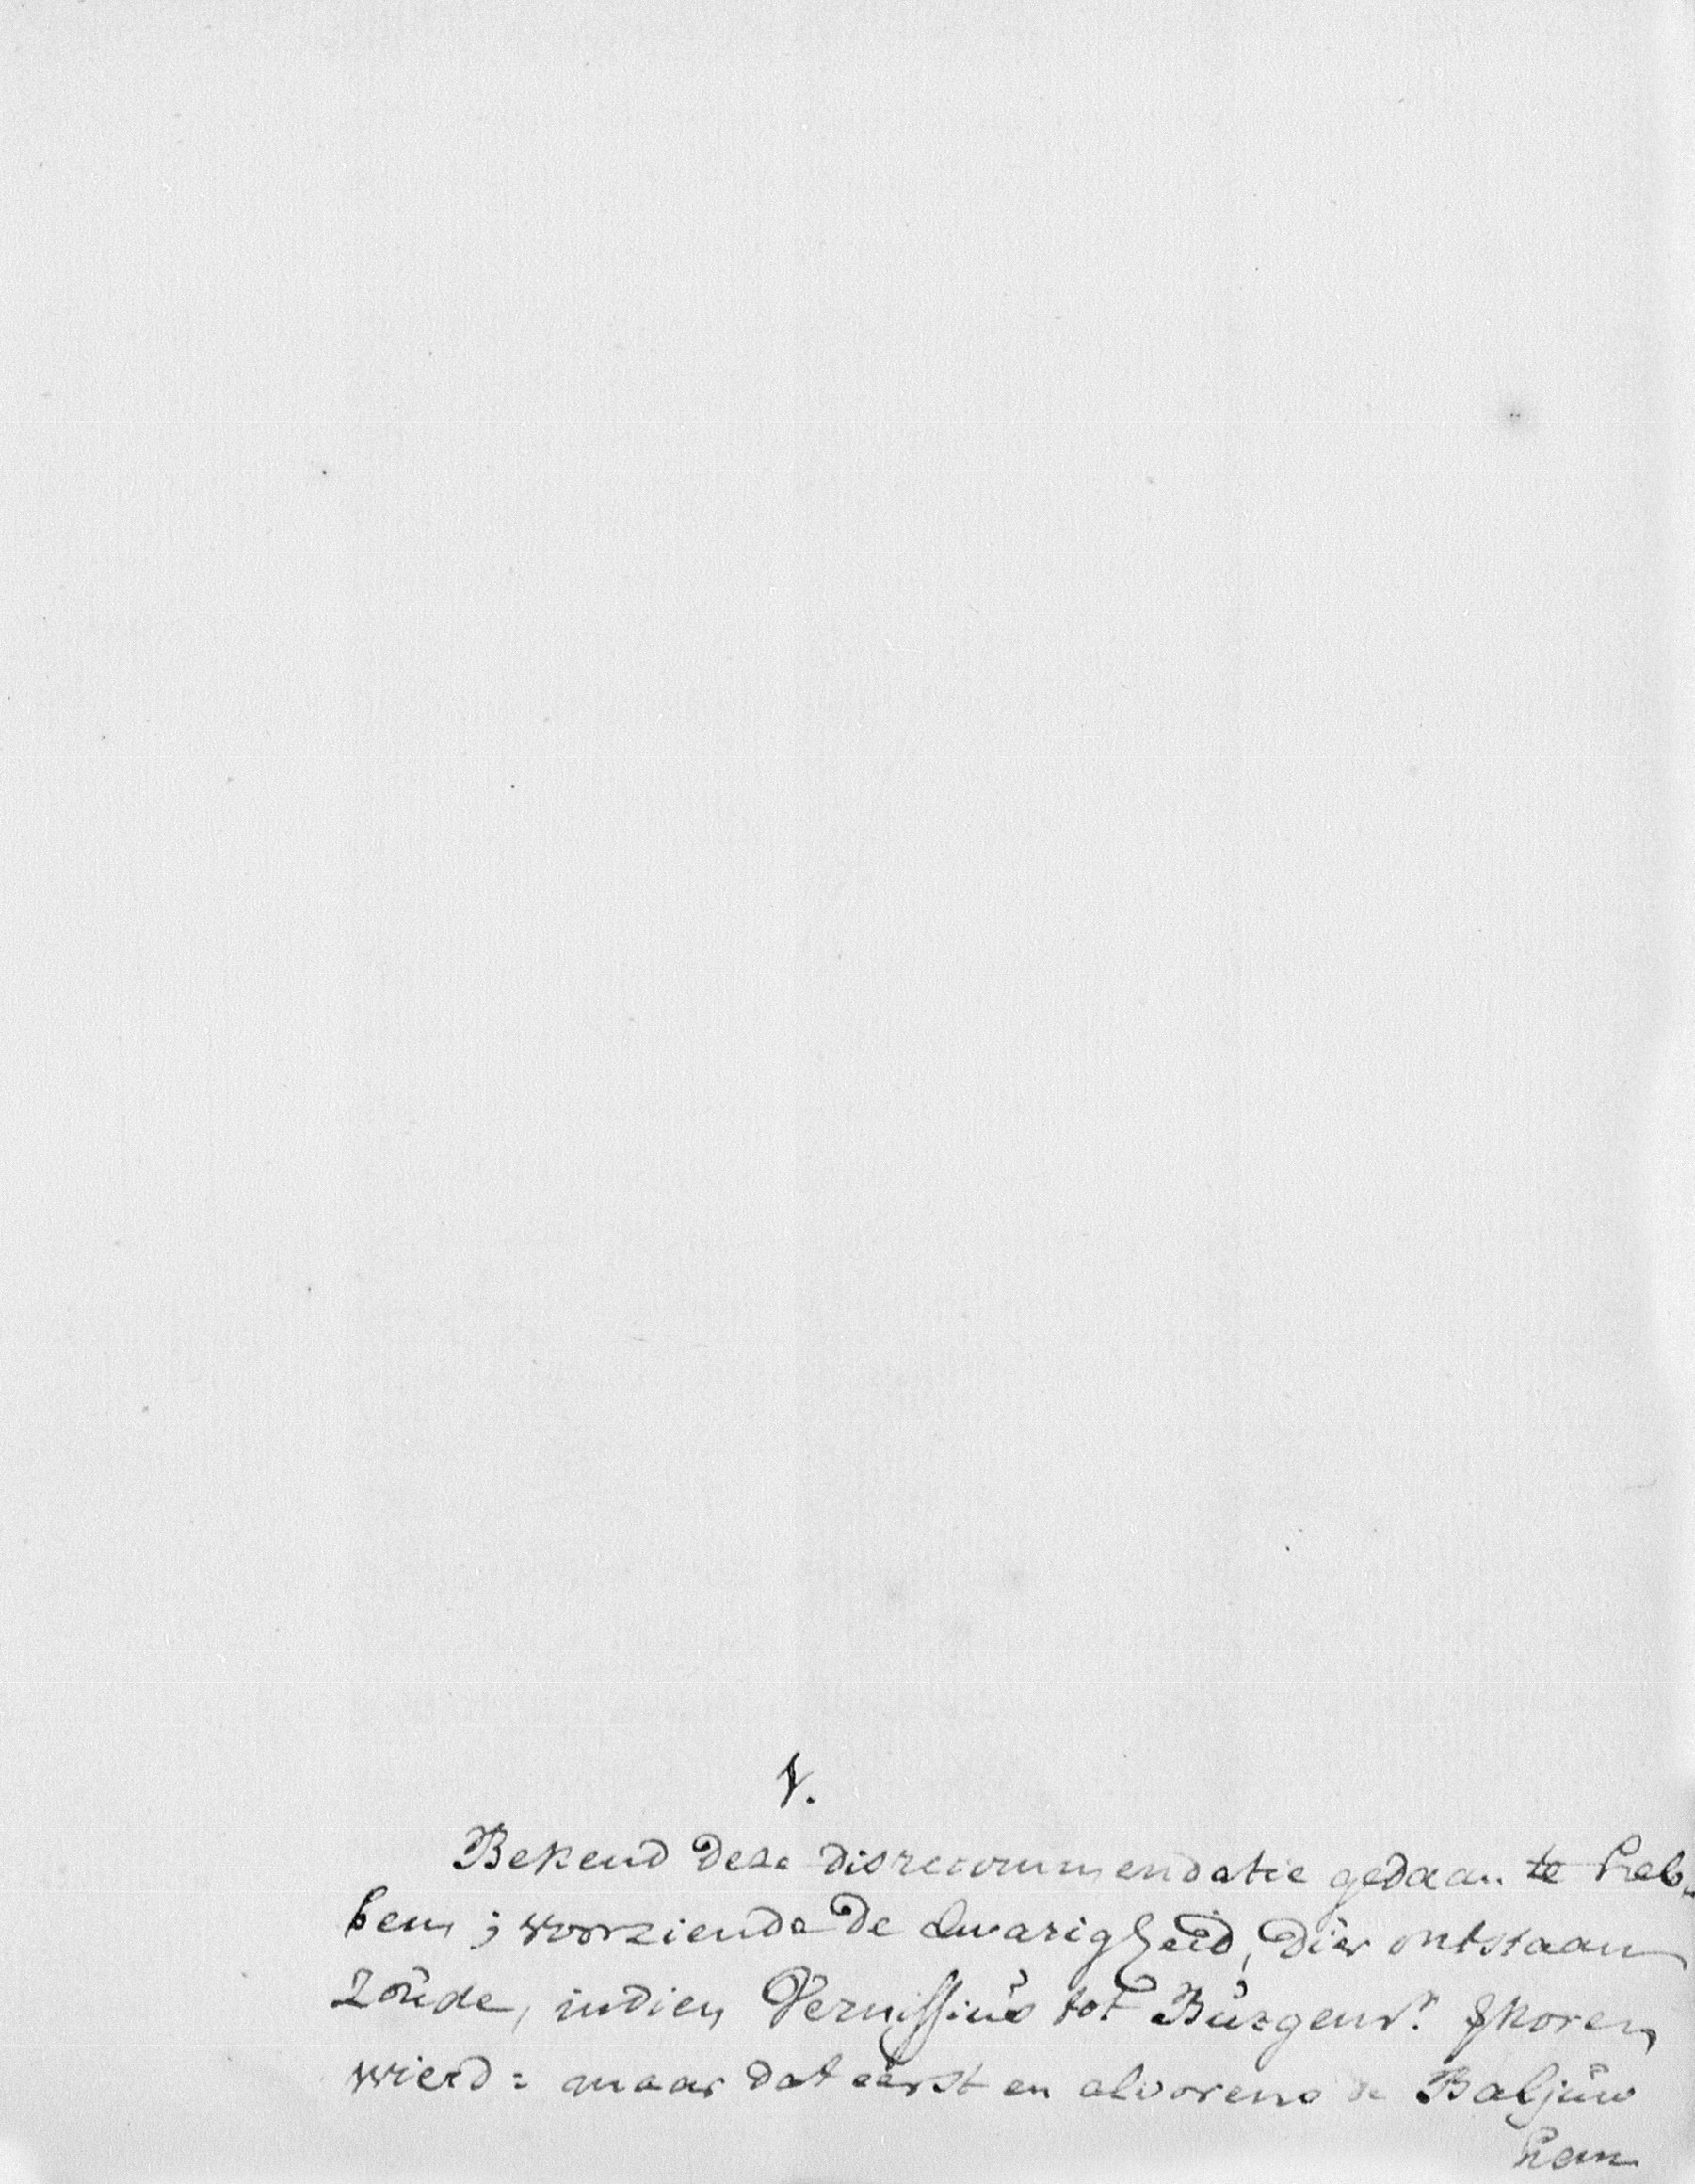 V.
Bekend deze disrecommendatie gedaan te heb„
ben; voorziende de swarigheid, dier ontstaan
zoude, indien Vernissius tot Burgemr. gekoren
wierd: maar dat eerst en alvorens de Baljuw
hem